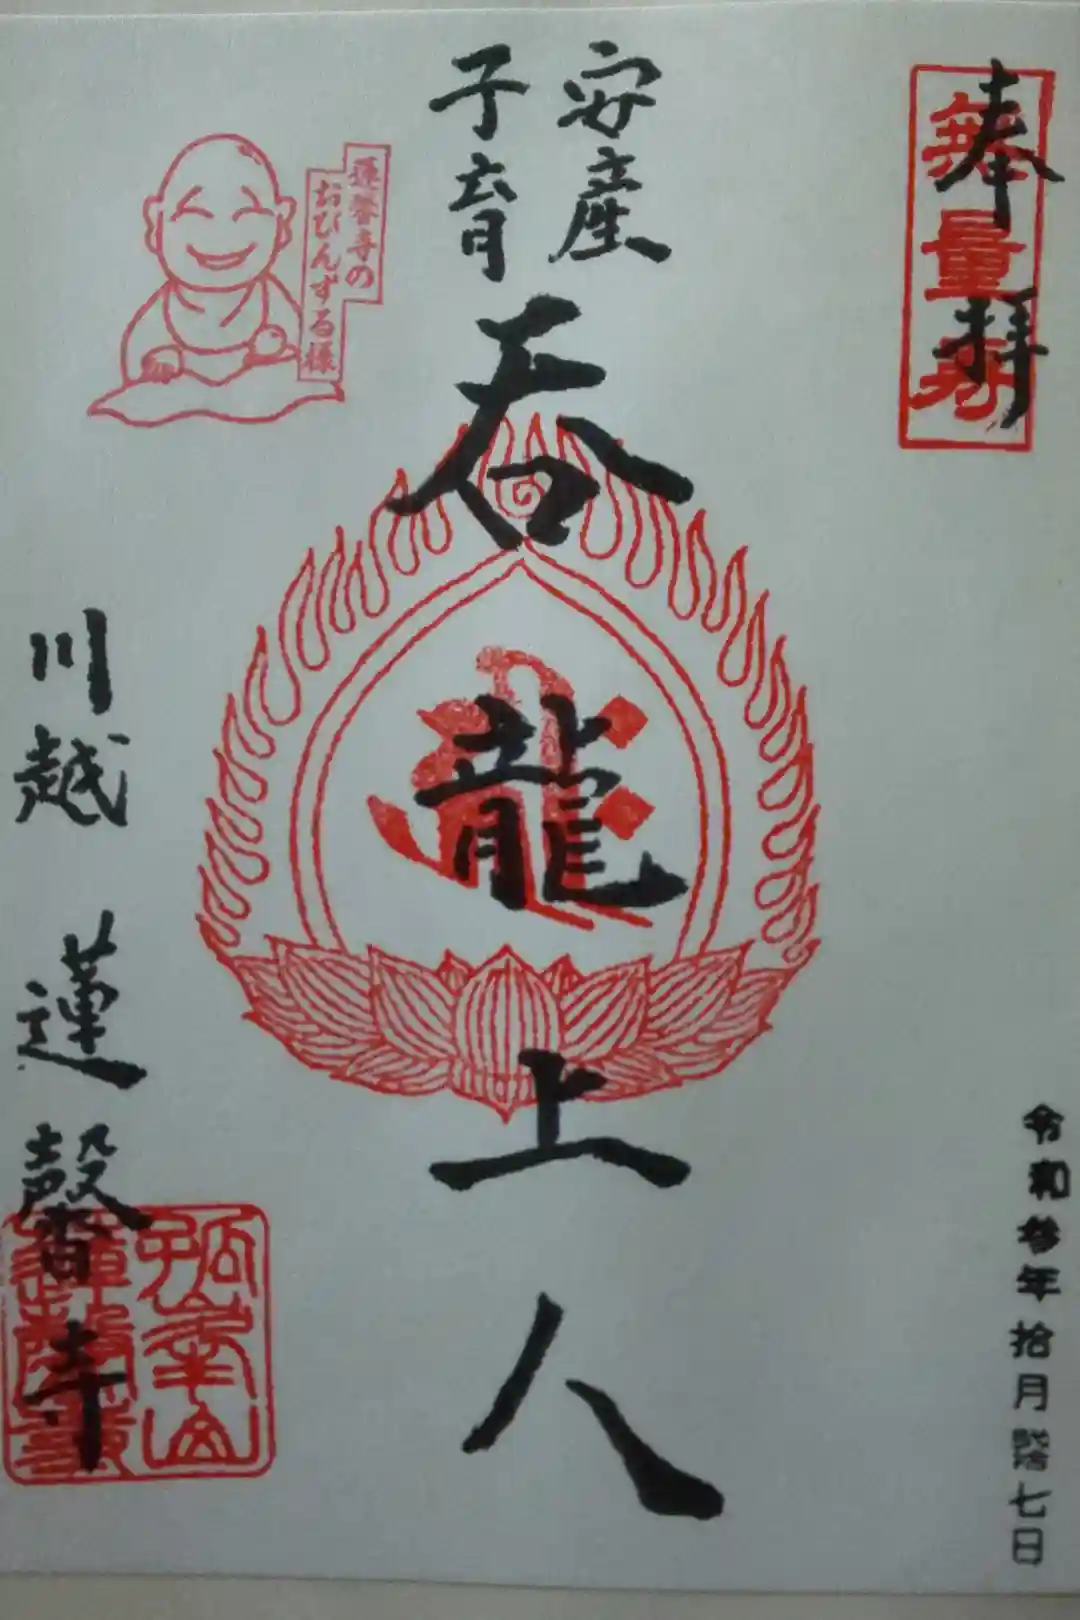 奉拝
無量寿
安産
子育
呑龍上人
蓮馨寺の
おびんずる様
川越 蓮馨寺
孤峯山
令和参年拾月
七日